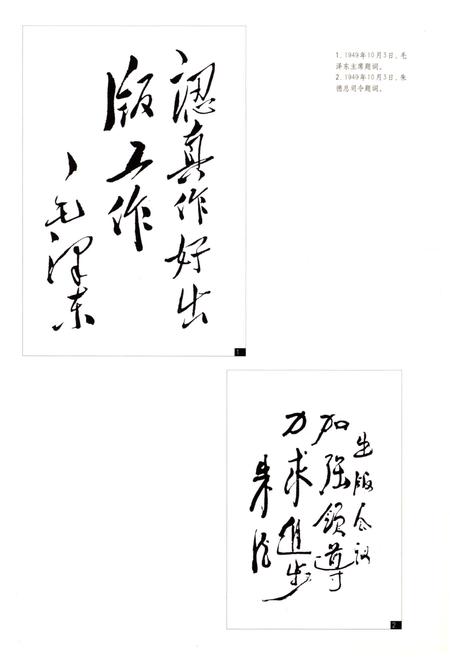 認真作好出
版工作
毛澤东
1
1. 1949年10月3日，毛
泽东主席题词。
2. 1949年10月3日，朱
德总司令题词。
出版会议
加强領導
力求進步
朱德
2